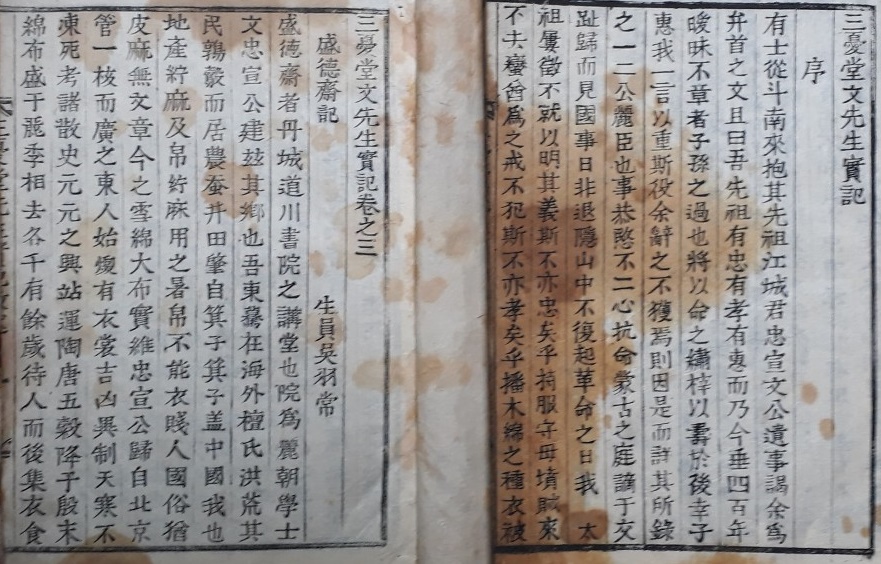 三憂堂文先生實記
序
有士從斗南來抱其先祖江城君忠宣文公遺事謁余爲
弁首之文且曰吾先祖有忠有孝有惠而乃今垂四百年
曖昧不章者子孫之過也將以命之繡梓以壽於後幸子
惠我一言以重斯役余辭之不獲焉則因是而詳其所錄
之一二公麗臣也事恭愍不二心抗命蒙古之庭謫于交
趾歸而見國事日非退隱山中不復起革命之日我 太
祖屢徵不就以明其義斯不亦忠矣乎持服守母墳賊來
不去蠻酋爲之戒不犯斯不亦孝矣乎播木綿之種衣被
三憂堂文先生實記卷之三
盛德齋記
生員吳羽常
盛德齋者丹城道川書院之講堂也院爲麗朝學士
文忠宣公建玆其鄉也吾東驀在海外檀氏洪荒其
民鶉鷇而居農蚕井田肇自箕子箕子盖中國我也
地產紵麻及帛紵麻用之暑帛不能衣賤人國俗猶
皮麻無文章今之雪綿大布實維忠宣公歸自北京
管一核而廣之東人始煖有衣裳吉凶異制天寒不
凍死者諸散史元元之興站運陶唐五穀降于殷末
綿布盛于麗季相去各千有餘歲待人而後集衣食